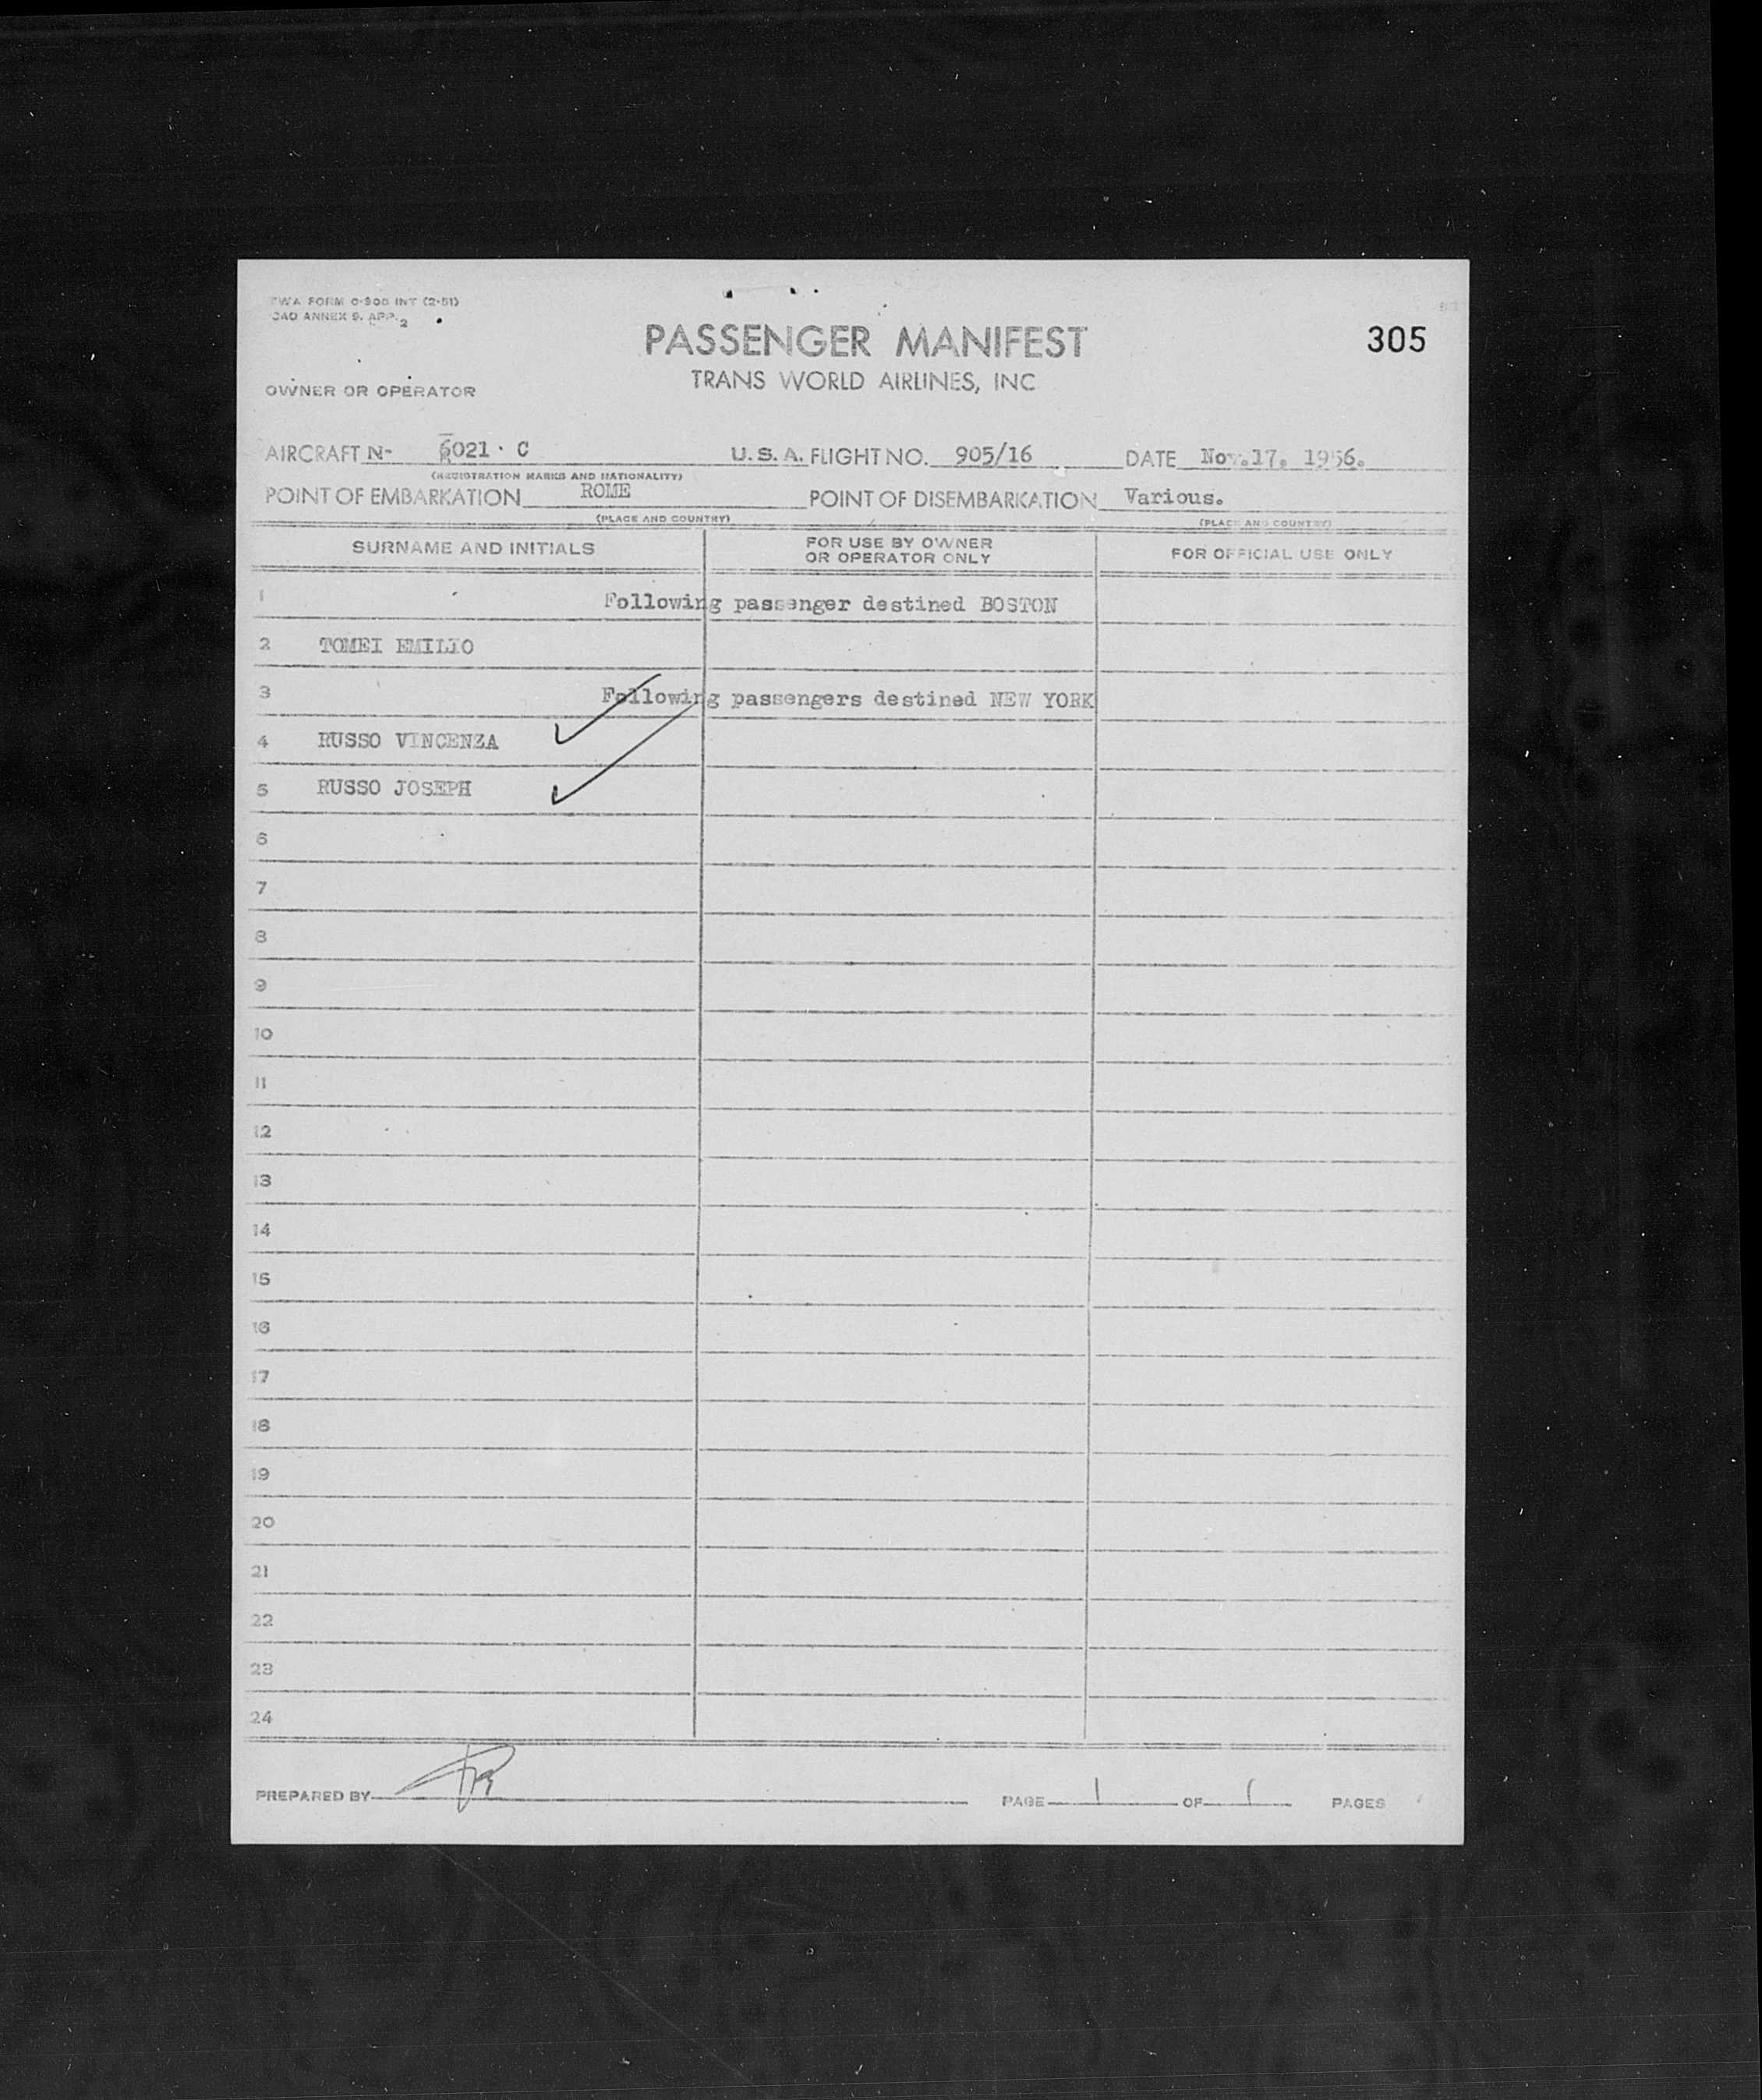 TWA FORM 0-900 INT (2-51)
ICAO ANNEX 9. APP. 2
PASSENGER MANIFEST
305
TRANS WORLD AIRLINES, INC
OWNER OR OPERATOR
AIRCRAFT N- 6021 · C U.S.A. FLIGHT NO. 905/16 DATE Nov.17. 1956.
(REGISTRATION MARKS AND NATIONALITY)
POINT OF EMBARKATION ROME POINT OF DISEMBARKATION Various.
(PLACE AND COUNTRY) (PLACE AND COUNTRY)
SURNAME AND INITIALS FOR USE BY OWNER OR OPERATOR ONLY FOR OFFICIAL USE ONLY
1 Following passenger destined BOSTON
2 TOMEI EMILIO
3 Following passengers destined NEW YORK
4 RUSSO VINCENZA
5 RUSSO JOSEPH
6
7
8
9
10
11
12
13
14
15
16
17
18
19
20
21
22
23
24
PREPARED BY PAGE 1 OF 1 PAGES